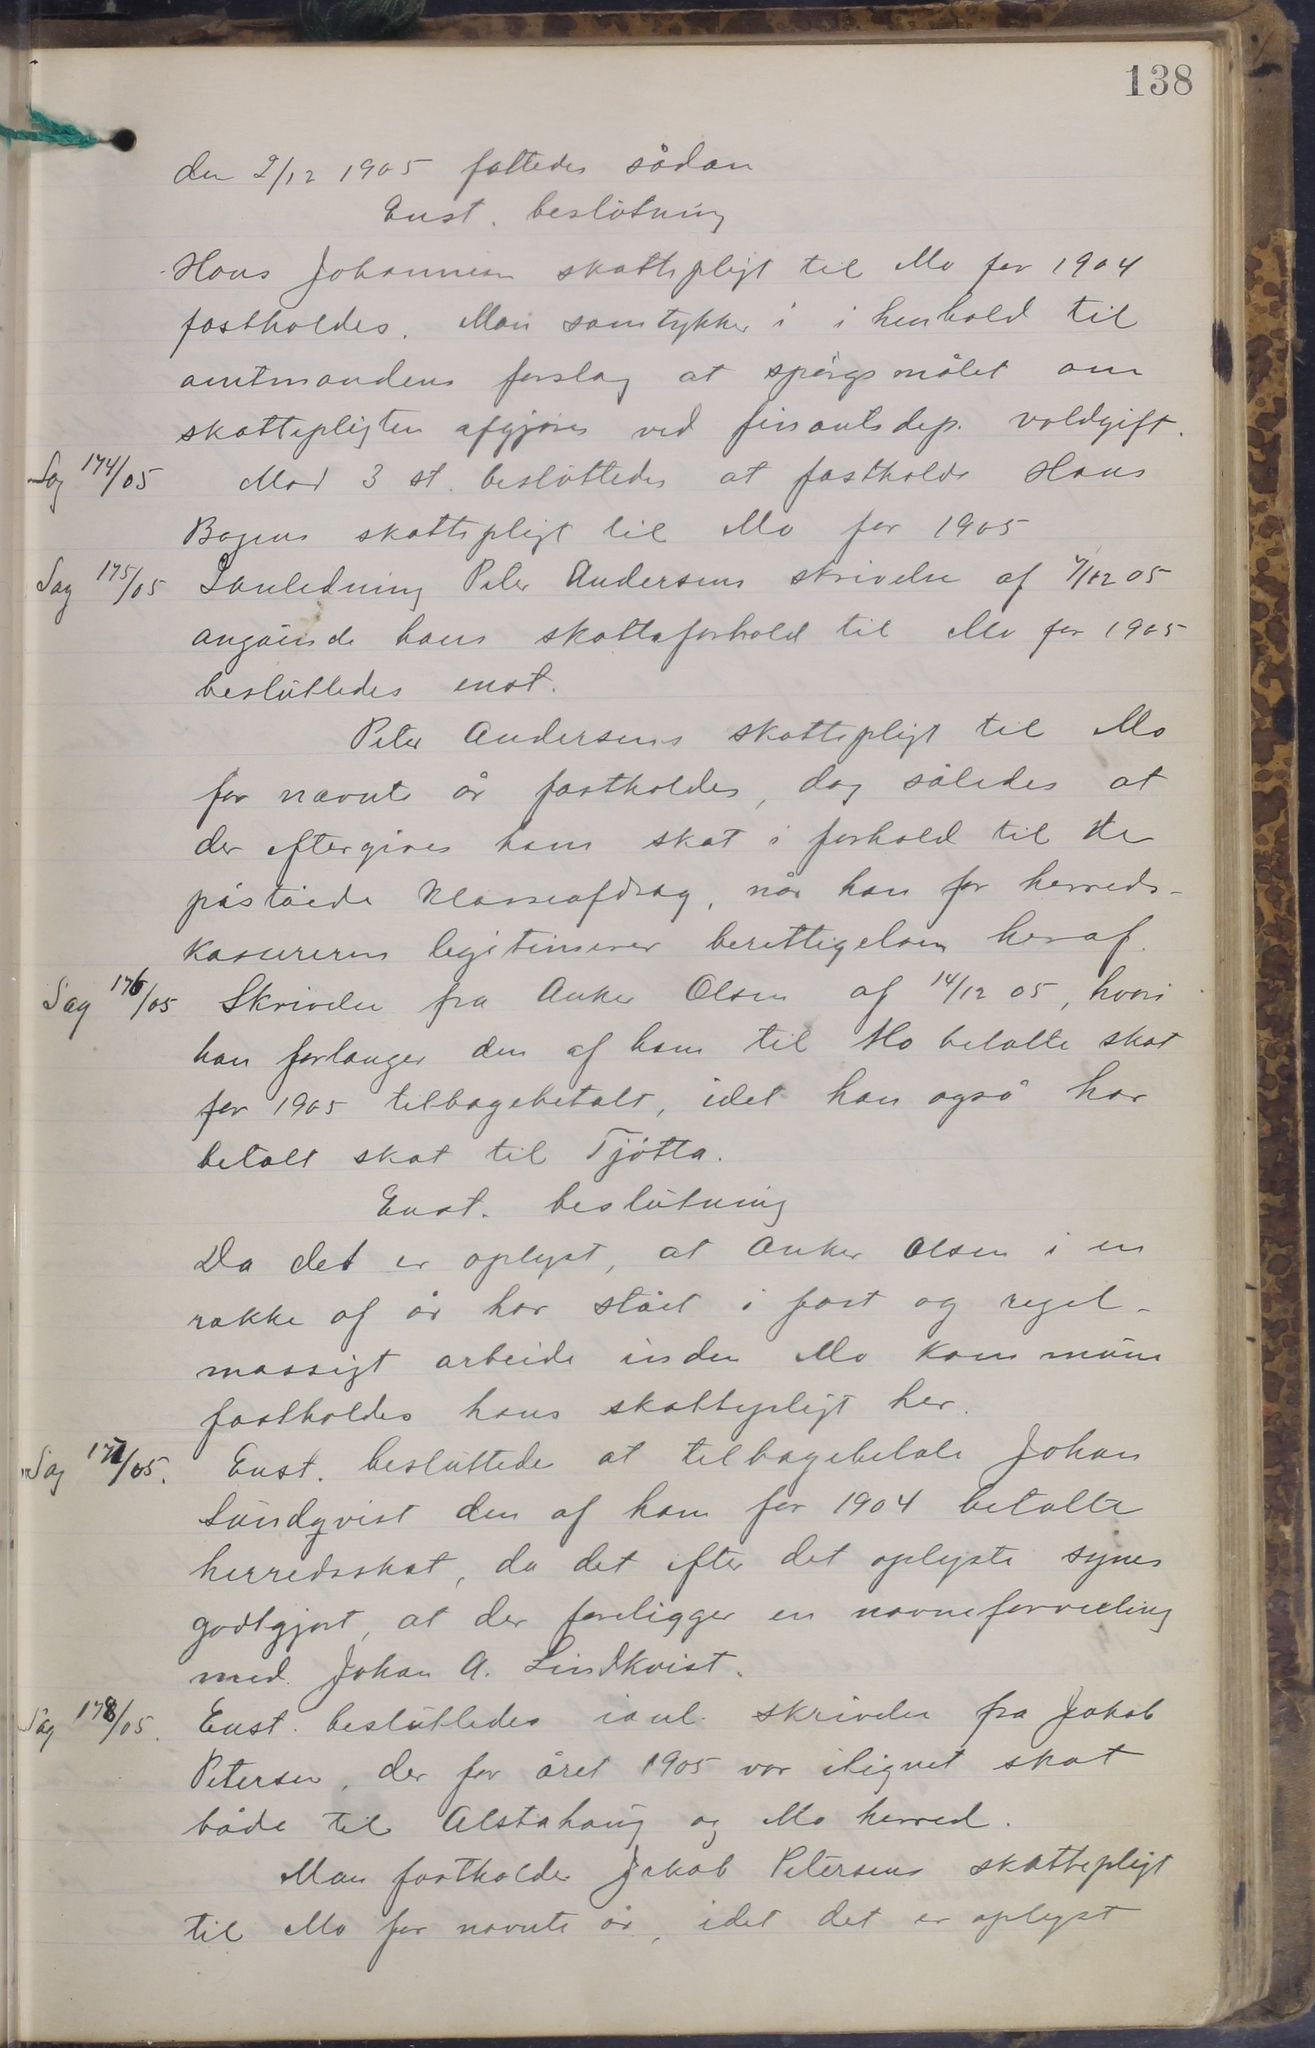 138
den 2/12 1905 fattedes sådan
Enst. beslutning
Hans Johannesen skattepligt til Mo for 1904
fastholdes. Man samtykker i i henhold til
amtmandens forslag at spørgsmålet om
skattepligten afgjøres ved finantsdep. voldgift.
Sag 174/05 Mod 3 st. besluttedes at fastholde Hans
Bogens skattepligt til Mo for 1905
Sag 175/05 I anledning Peter Andersens skrivelse af 7/12 05
angående hans skatteforhold til Mo for 1905
besluttedes enst.
Peter Andersens skattepligt til Mo
for nævnte år fastholdes, dog således at
der eftergives ham skat i forhold til de
påståede klasseafdrag, når han for herreds-
kassereren legitimerer berettigelsen heraf.
Sag 176/05 Skrivelse fra Anker Olsen af 14/12 05, hvori
han forlanger den af ham til Mo betalte skat
for 1905 tilbagebetalt, idet han også har
betalt skat til Tjøtta.
Enst. beslutning
Da det er oplyst, at Anker Olsen i en
række af år har stået i fast og regel-
mæssigt arbeide inden Mo kommune
fastholdes hans skattepligt her.
Sag 177/05. Enst. besluttede at tilbagebetale Johan
Sundqvist den af ham for 1904 betalte
herredsskat, da det efter det oplyste synes
godtgjort, at der foreligger en navneforvexling
med Johan A. Lindkvist.
Sag 178/05. Enst. besluttedes ianl. skrivelse fra Jakob
Petersen, der for året 1905 var ilignet skat
både til Alstahoug og Mo herred.
Man fastholder Jakob Petersens skattepligt
til Mo for nævnte år, idet det er oplyst